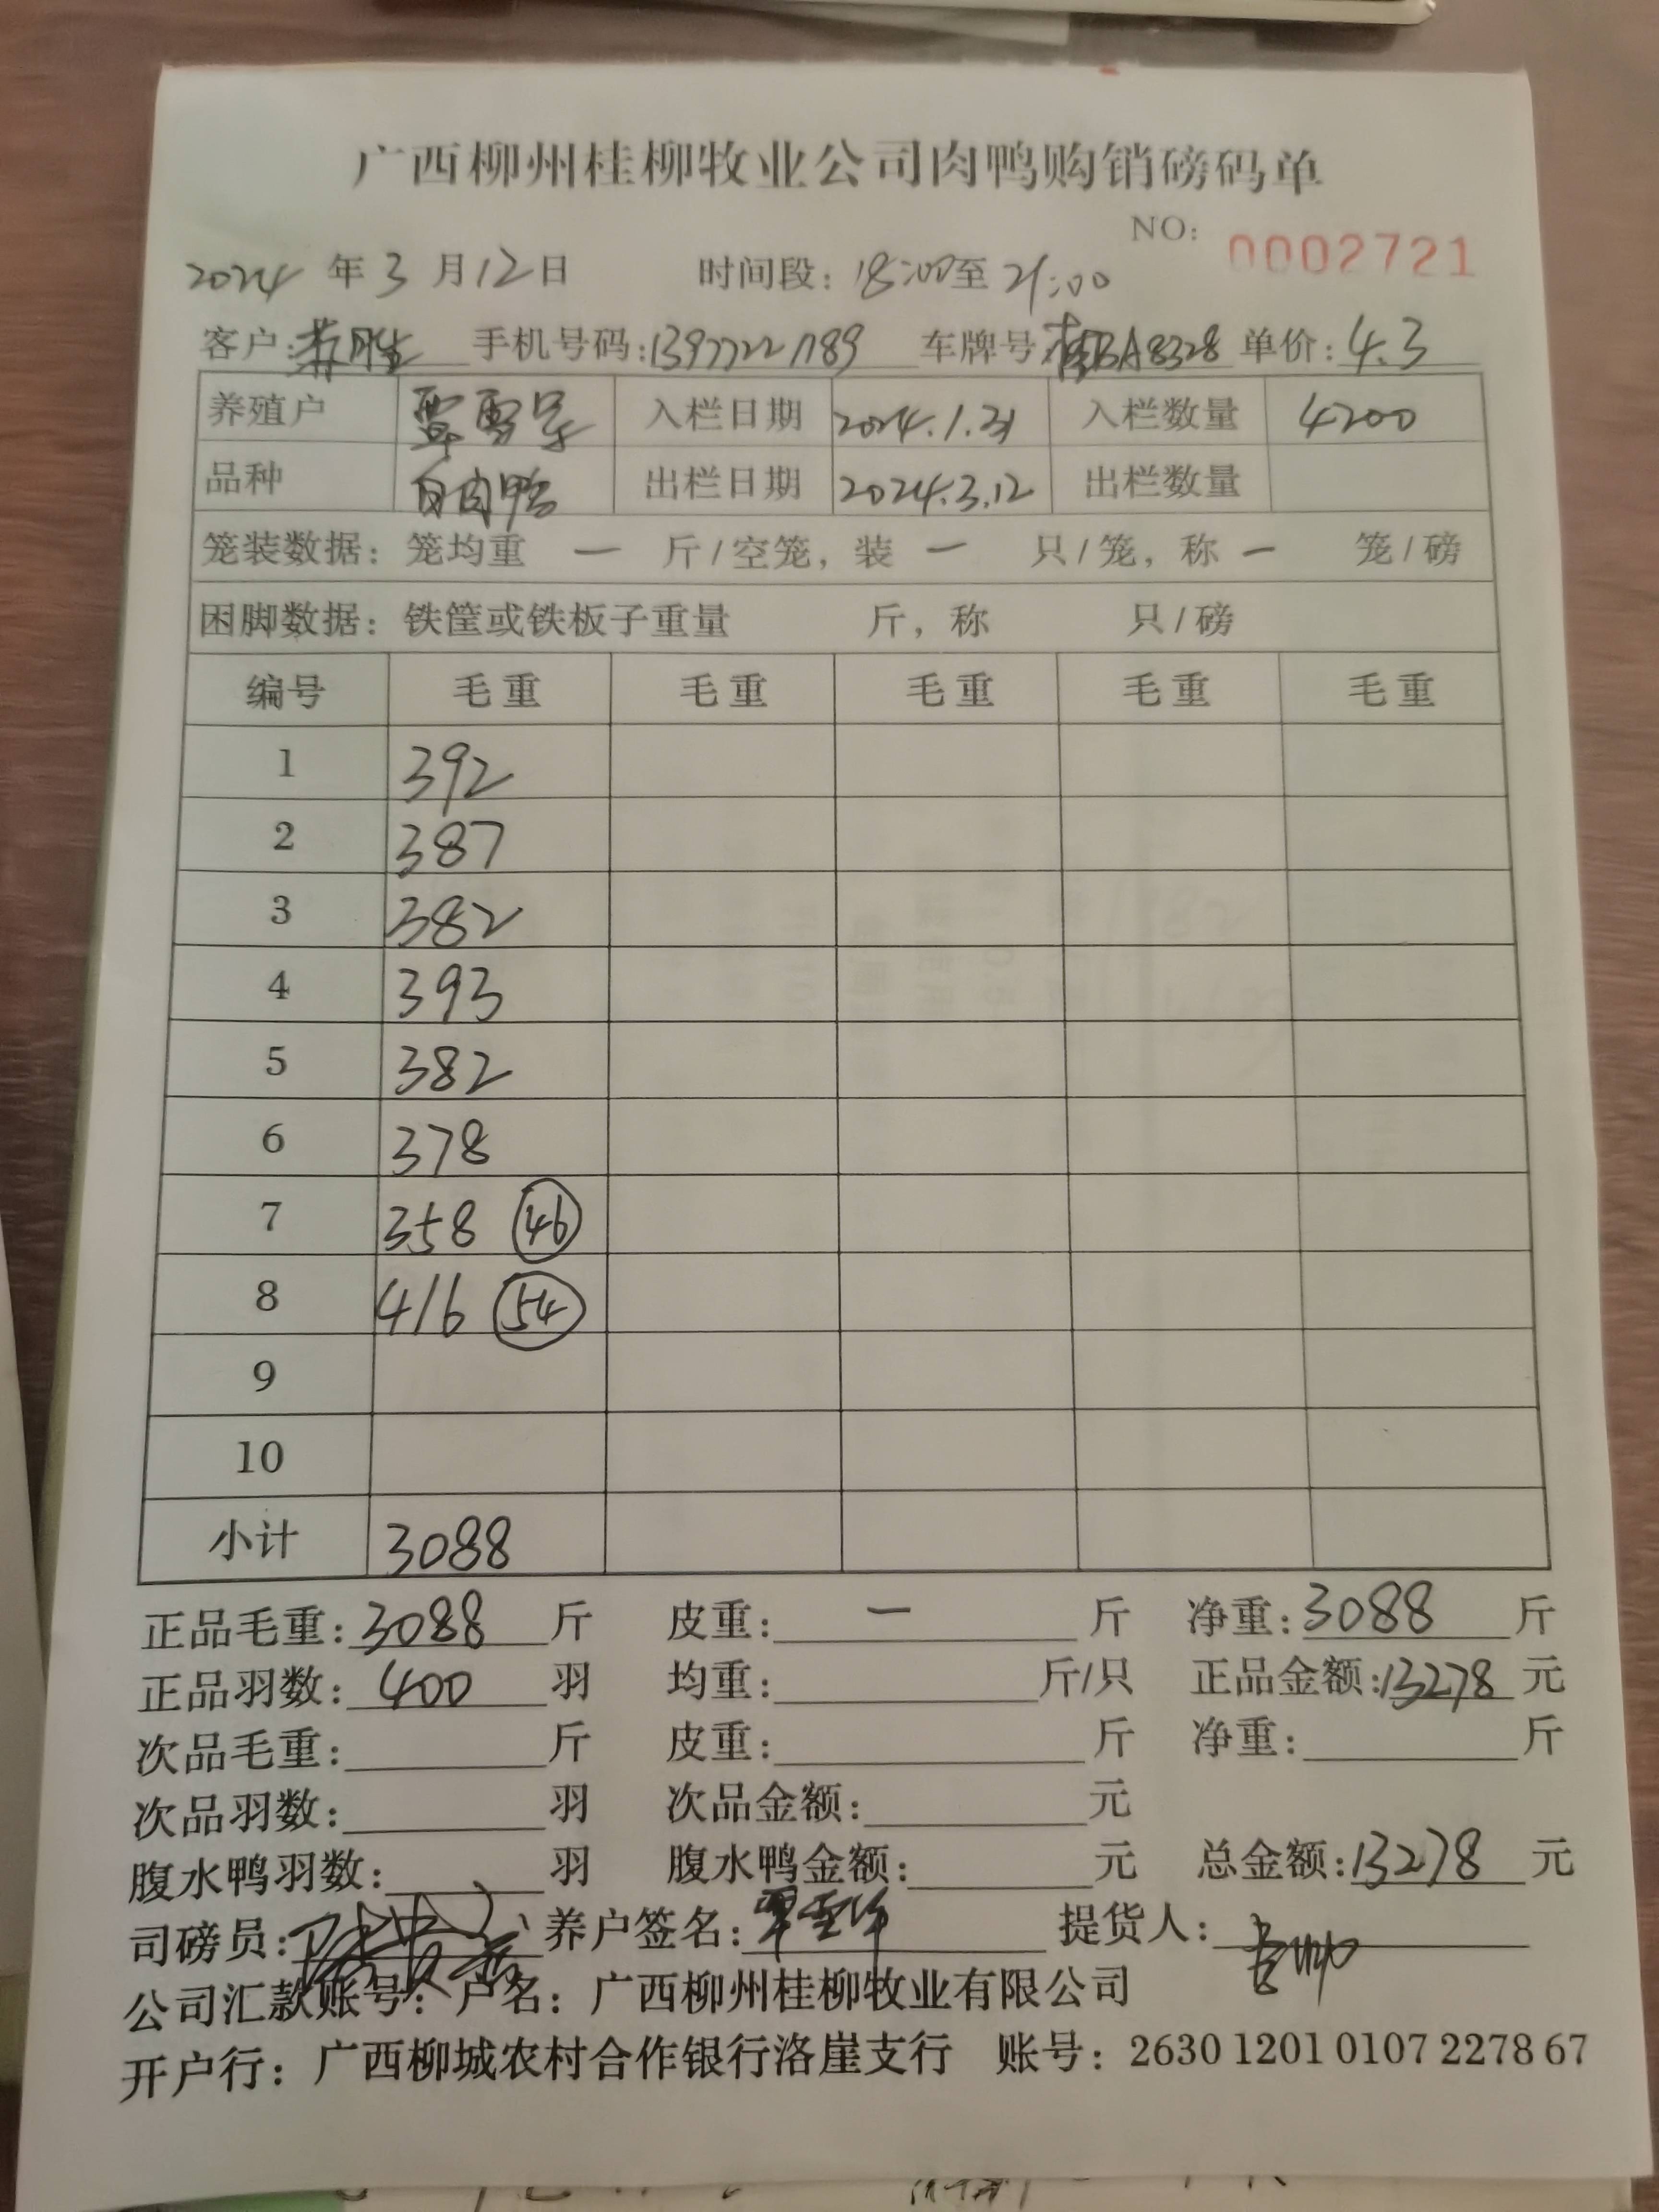 广西柳州桂柳牧业公司肉鸭购销磅码单
NO: 0002721
2024 年 3 月 12 日 时间段: 18:00 至 21:00
客户: 手机号码: 13977221789 车牌号 桂BA8328 单价: 4.3
养殖户 覃 入栏日期 2024.1.31 入栏数量 4200
品种 白肉鸭 出栏日期 2024.3.12 出栏数量
笼装数据: 笼均重 一 斤/空笼, 装 一 只/笼, 称 一 笼/磅
困脚数据: 铁筐或铁板子重量 斤, 称 只/磅
编号 毛重 毛重 毛重 毛重 毛重
1 392
2 387
3 382
4 393
5 382
6 378
7 358 46
8 416 54
9
10
小计 3088
正品毛重: 3088 斤 皮重: 一 斤 净重: 3088 斤
正品羽数: 400 羽 均重: 斤/只 正品金额: 13278 元
次品毛重: 斤 皮重: 斤 净重: 斤
次品羽数: 羽 次品金额: 元
腹水鸭羽数: 羽 腹水鸭金额: 元 总金额: 13278 元
司磅员: 养户签名: 覃 提货人:
公司汇款账号: 户名: 广西柳州桂柳牧业有限公司
开户行: 广西柳城农村合作银行洛崖支行 账号: 2630 1201 0107 2278 67